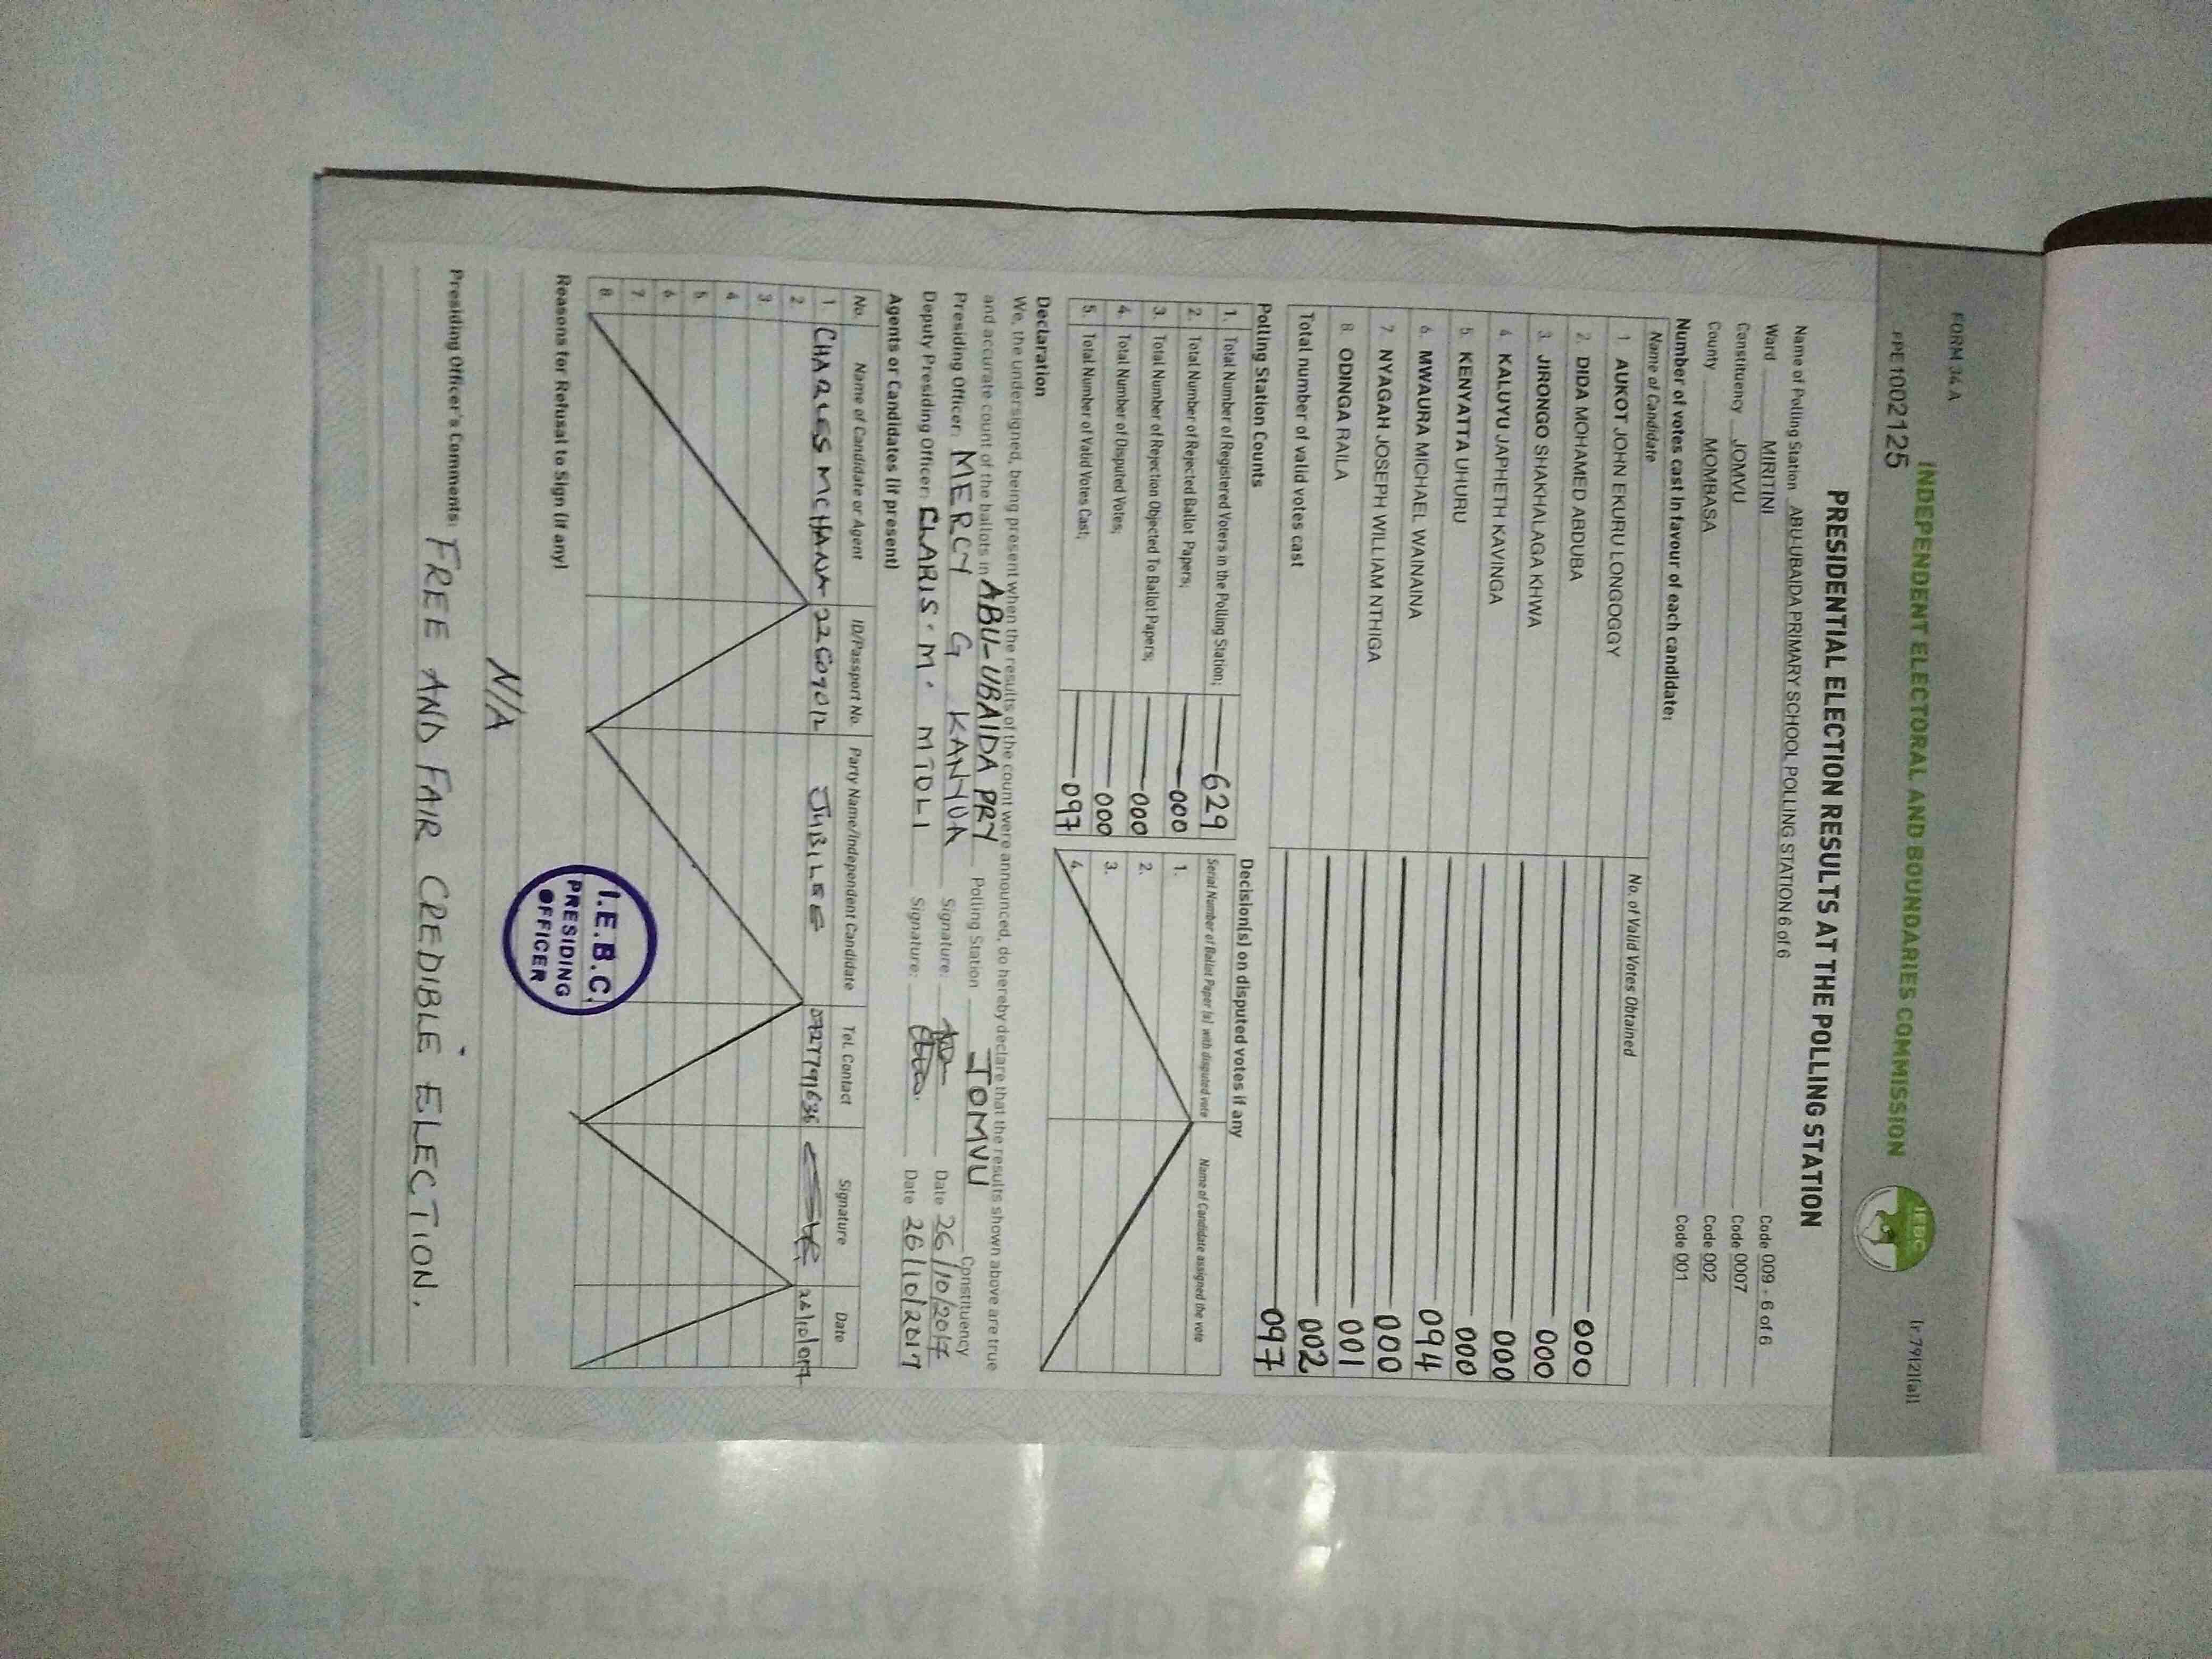 FORM 34A
INDEPENDENT ELECTORAL AND BOUNDARIES COMMISSION
IEBC
(r 79(2)(a))
PE1002125
PRESIDENTIAL ELECTION RESULTS AT THE POLLING STATION
Name of Polling Station ABU-UBAIDA PRIMARY SCHOOL POLLING STATION 6 of 6 Code 009 - 6 of 6
Ward MIRITINI Code 0007
Constituency JOMVU Code 002
County MOMBASA Code 001
Number of votes cast in favour of each candidate:
Name of Candidate No. of Valid Votes Obtained
1 AUKOT JOHN EKURU LONGOGGY 000
2. DIDA MOHAMED ABDUBA 000
3. JIRONGO SHAKHALAGA KHWA 000
4. KALUYU JAPHETH KAVINGA 000
5. KENYATTA UHURU 094
6. MWAURA MICHAEL WAINAINA 000
7. NYAGAH JOSEPH WILLIAM NTHIGA 001
8. ODINGA RAILA 002
Total number of valid votes cast 097
Polling Station Counts
1. Total Number of Registered Voters in the Polling Station; 629
2. Total Number of Rejected Ballot Papers; 000
3. Total Number of Rejection Objected To Ballot Papers; 000
4. Total Number of Disputed Votes; 000
5. Total Number of Valid Votes Cast; 097
Decision(s) on disputed votes if any
Serial Number of Ballot Paper (s) with disputed vote Name of Candidate assigned the vote
1.
2.
3.
4.
Declaration
We, the undersigned, being present when the results of the count were announced, do hereby declare that the results shown above are true
and accurate count of the ballots in ABU-UBAIDA PRY Polling Station JOMVU Constituency
Presiding Officer: MERCY G KANYUA Signature: Date 26/10/2017
Deputy Presiding Officer: CLARIS. M. MTOLI Signature: Date 26/10/2017
Agents or Candidates (if present)
No. Name of Candidate or Agent ID/Passport No. Party Name/Independent Candidate Tel. Contact Signature Date
1 CHARLES MCHANA JUBILEE
2.
3.
4
5.
6.
7.
8.
Reasons for Refusal to Sign (if any)
I.E.B.C.
PRESIDING
OFFICER
N/A
Presiding Officer's Comments: FREE AND FAIR CREDIBLE ELECTION.